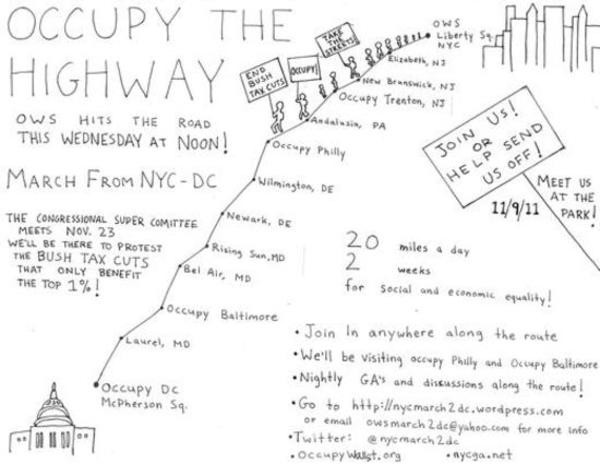 OCCUPY THE
HIGHWAY
OWS HITS THE ROAD
THIS WEDNESDAY AT NOON!
MARCH FROM NYC-DC
THE CONGRESSIONAL SUPER COMITTEE
MEETS NOV. 23
WE'LL BE THERE TO PROTEST
THE BUSH TAX CUTS
THAT ONLY BENEFIT
THE TOP 1%!
END
BUSH
TAX CUTS
OCCUPY!
TAKE
THE
STREETS!
OWS
Liberty Sq.
NYC
Elizabeth, NJ
New Brunswick, NJ
Occupy Trenton, NJ
Andalusia, PA
Occupy Philly
Wilmington, DE
Newark, DE
Rising Sun, MD
Bel Air, MD
Occupy Baltimore
Laurel, MD
Occupy DC
McPherson Sq.
JOIN US!
OR
HELP SEND
US OFF!
MEET US
AT THE
PARK!
11/9/11
20 miles a day
2 weeks
for social and economic equality!
• Join In anywhere along the route
• We'll be visiting occupy Philly and Occupy Baltimore
• Nightly GA's and discussions along the route!
• Go to http://nycmarch2dc.wordpress.com
or email owsmarch2dc@yahoo.com for more info
• Twitter: @nycmarch2dc
• OccupyWallst.org • nycga.net